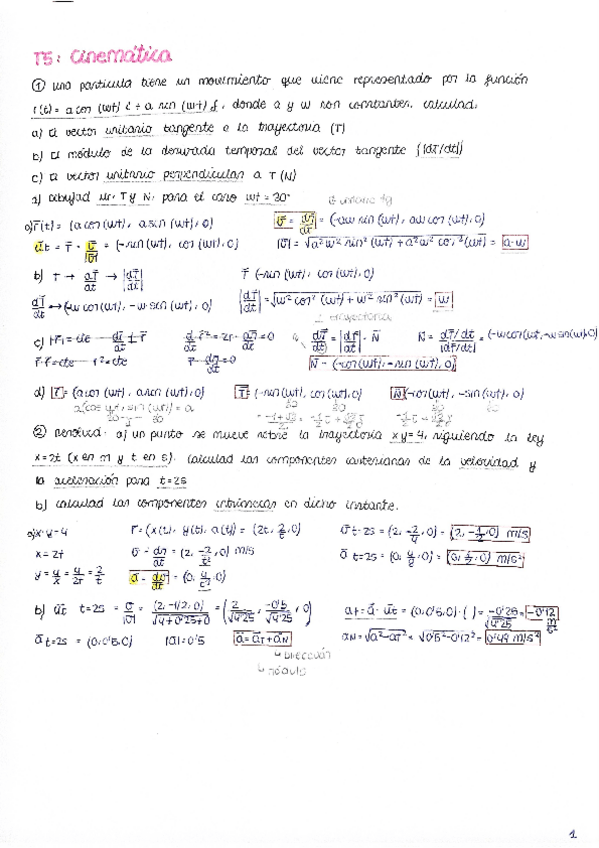 T5: Cinemática
① una partícula tiene un movimiento que viene representado por la función
r(t) = a cos (wt) i + a sen (wt) j, donde a y w son constantes. calculad:
a) El vector unitario tangente a la trayectoria (T)
b) El módulo de la derivada temporal del vector tangente (|dT/dt|)
c) El vector unitario perpendicular a T (N)
d) Dibujad T y N, para el caso wt = 30°
a) r(t) = (a cos(wt), a sin(wt), 0) v = dr/dt = (-aw sin(wt), aw cos(wt), 0)
ut = T = v/|v| = (-sin(wt), cos(wt), 0) |v| = √a²w² sin²(wt) + a²w² cos²(wt) = a·w
b) T → dT/dt → |dT/dt| T (-sin(wt), cos(wt), 0)
dT/dt → (-w cos(wt), -w sin(wt), 0) |dT/dt| = √w² cos²(wt) + w² sin²(wt) = w
⊥ trayectoria
c) |r| = cte dr/dt ⊥ r d/dt r² = 2r · dr/dt = 0 dT/dt = |dT/dt| · N N = dT/dt / |dT/dt| = (-w cos(wt, -w sin(wt), 0)
r·r = cte r² = cte r · dr/dt = 0 N = (-cos(wt), -sin(wt), 0)
d) r = (a cos(wt), a sin(wt), 0) T = (-sin(wt), cos(wt), 0) N (-cos(wt), -sin(wt), 0)
② Resolved: a) un punto se mueve sobre la trayectoria xy = 4, siguiendo la ley
x = 2t (x en m y t en s). calculad las componentes cartesianas de la velocidad y
la aceleración para t = 2s
b) calculad las componentes intrínsecas en dicho instante.
a) x·y = 4 r = (x(t), y(t), a(t)) = (2t, 2/t, 0) v t=2s = (2, -2/4, 0) = (2, -1/2, 0) m/s
x = 2t v = dr/dt = (2, -2/t², 0) m/s a t=2s = (0, 4/8, 0) = (0, 1/2, 0) m/s²
y = 4/x = 4/2t = 2/t a = dv/dt = (0, 4/t³, 0)
b) ut t=2s = v/|v| = (2, -1/2, 0)/√4+0'25+0 = (2/√4'25, -0'5/√4'25, 0) at = a · ut = (0, 0'5, 0) · ( ) = -0'25/√4'25 = -0'12 m/s²
a t=2s = (0, 0'5, 0) |a| = 0'5 a = aT + aN aN = √a² - aT² = √0'5² - 0'12² = 0'49 m/s²
↳ Dirección
↳ módulo
1